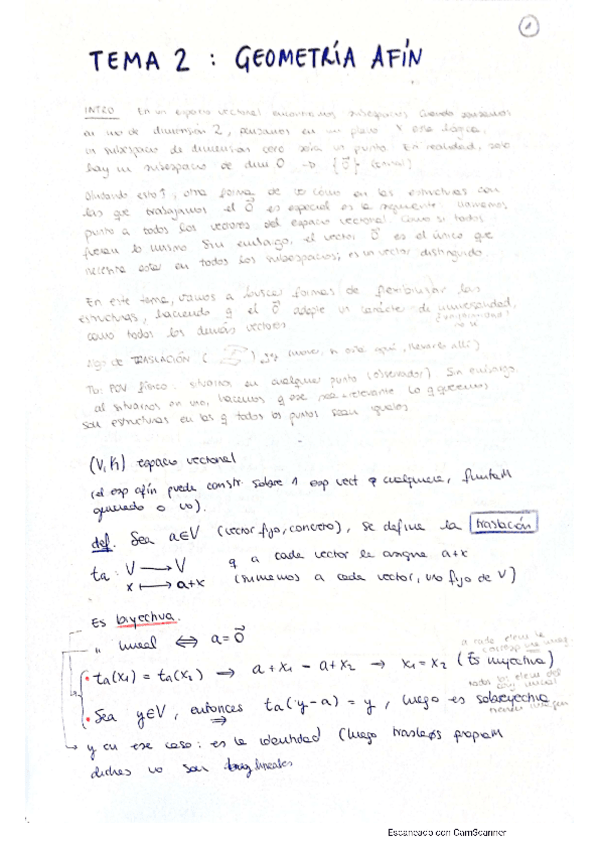 1
TEMA 2 : GEOMETRÍA AFÍN
INTRO En un espacio vectorial encontramos subespacios. Cuando pensamos
en uno de dimensión 2, pensamos en un plano y esa lógica,
un subespacio de dimensión cero sería un punto. En realidad, solo
hay un subespacio de dim 0 → {0⃗}
esto, otra forma de ver cómo en las estructuras con
las que trabajamos el 0⃗ es especial es la siguiente: llamemos
punto a todos los vectores del espacio vectorial como si todos
fueran lo mismo. Sin embargo, el vector 0⃗ es el único que
necesita estar en todos los subespacios; es un vector distinguido.
En este tema, vamos a buscar formas de flexibilizar las
estructuras, haciendo q el 0⃗ adopte un carácter de
como todos los demás vectores
Algo de TRASLACIÓN ( ) (mover, si está aquí, llevarlo allí)
Tb: POV físico: situarnos en cualquier punto (observador) Sin embargo,
al situarnos en uno, hacemos q ese sea relevante. Lo q queremos
son estructuras en las q todos los puntos sean iguales
(V, K) espacio vectorial
(el esp afín puede constr sobre 1 esp vect q cualquiera, finitam
generado o no).
def. Sea a∈V (vector fijo, concreto), se define la traslación
ta : V → V q a cada vector le asigna a+x
x ↦ a+x (sumemos a cada vector, uno fijo de V)
Es biyectiva.
" lineal ⟺ a=0⃗
a cada elem le
corresp una imag.
• ta(x1) = ta(x2) → a+x1 = a+x2 → x1=x2 (Es inyectiva)
todos los elem del
• Sea y∈V, entonces ta(y-a) = y, luego es sobreyectiva
⇒ tienen imagen
y en ese caso: es la identidad (luego traslac⁰s propiam
dichas no son lineales
Escaneado con CamScanner